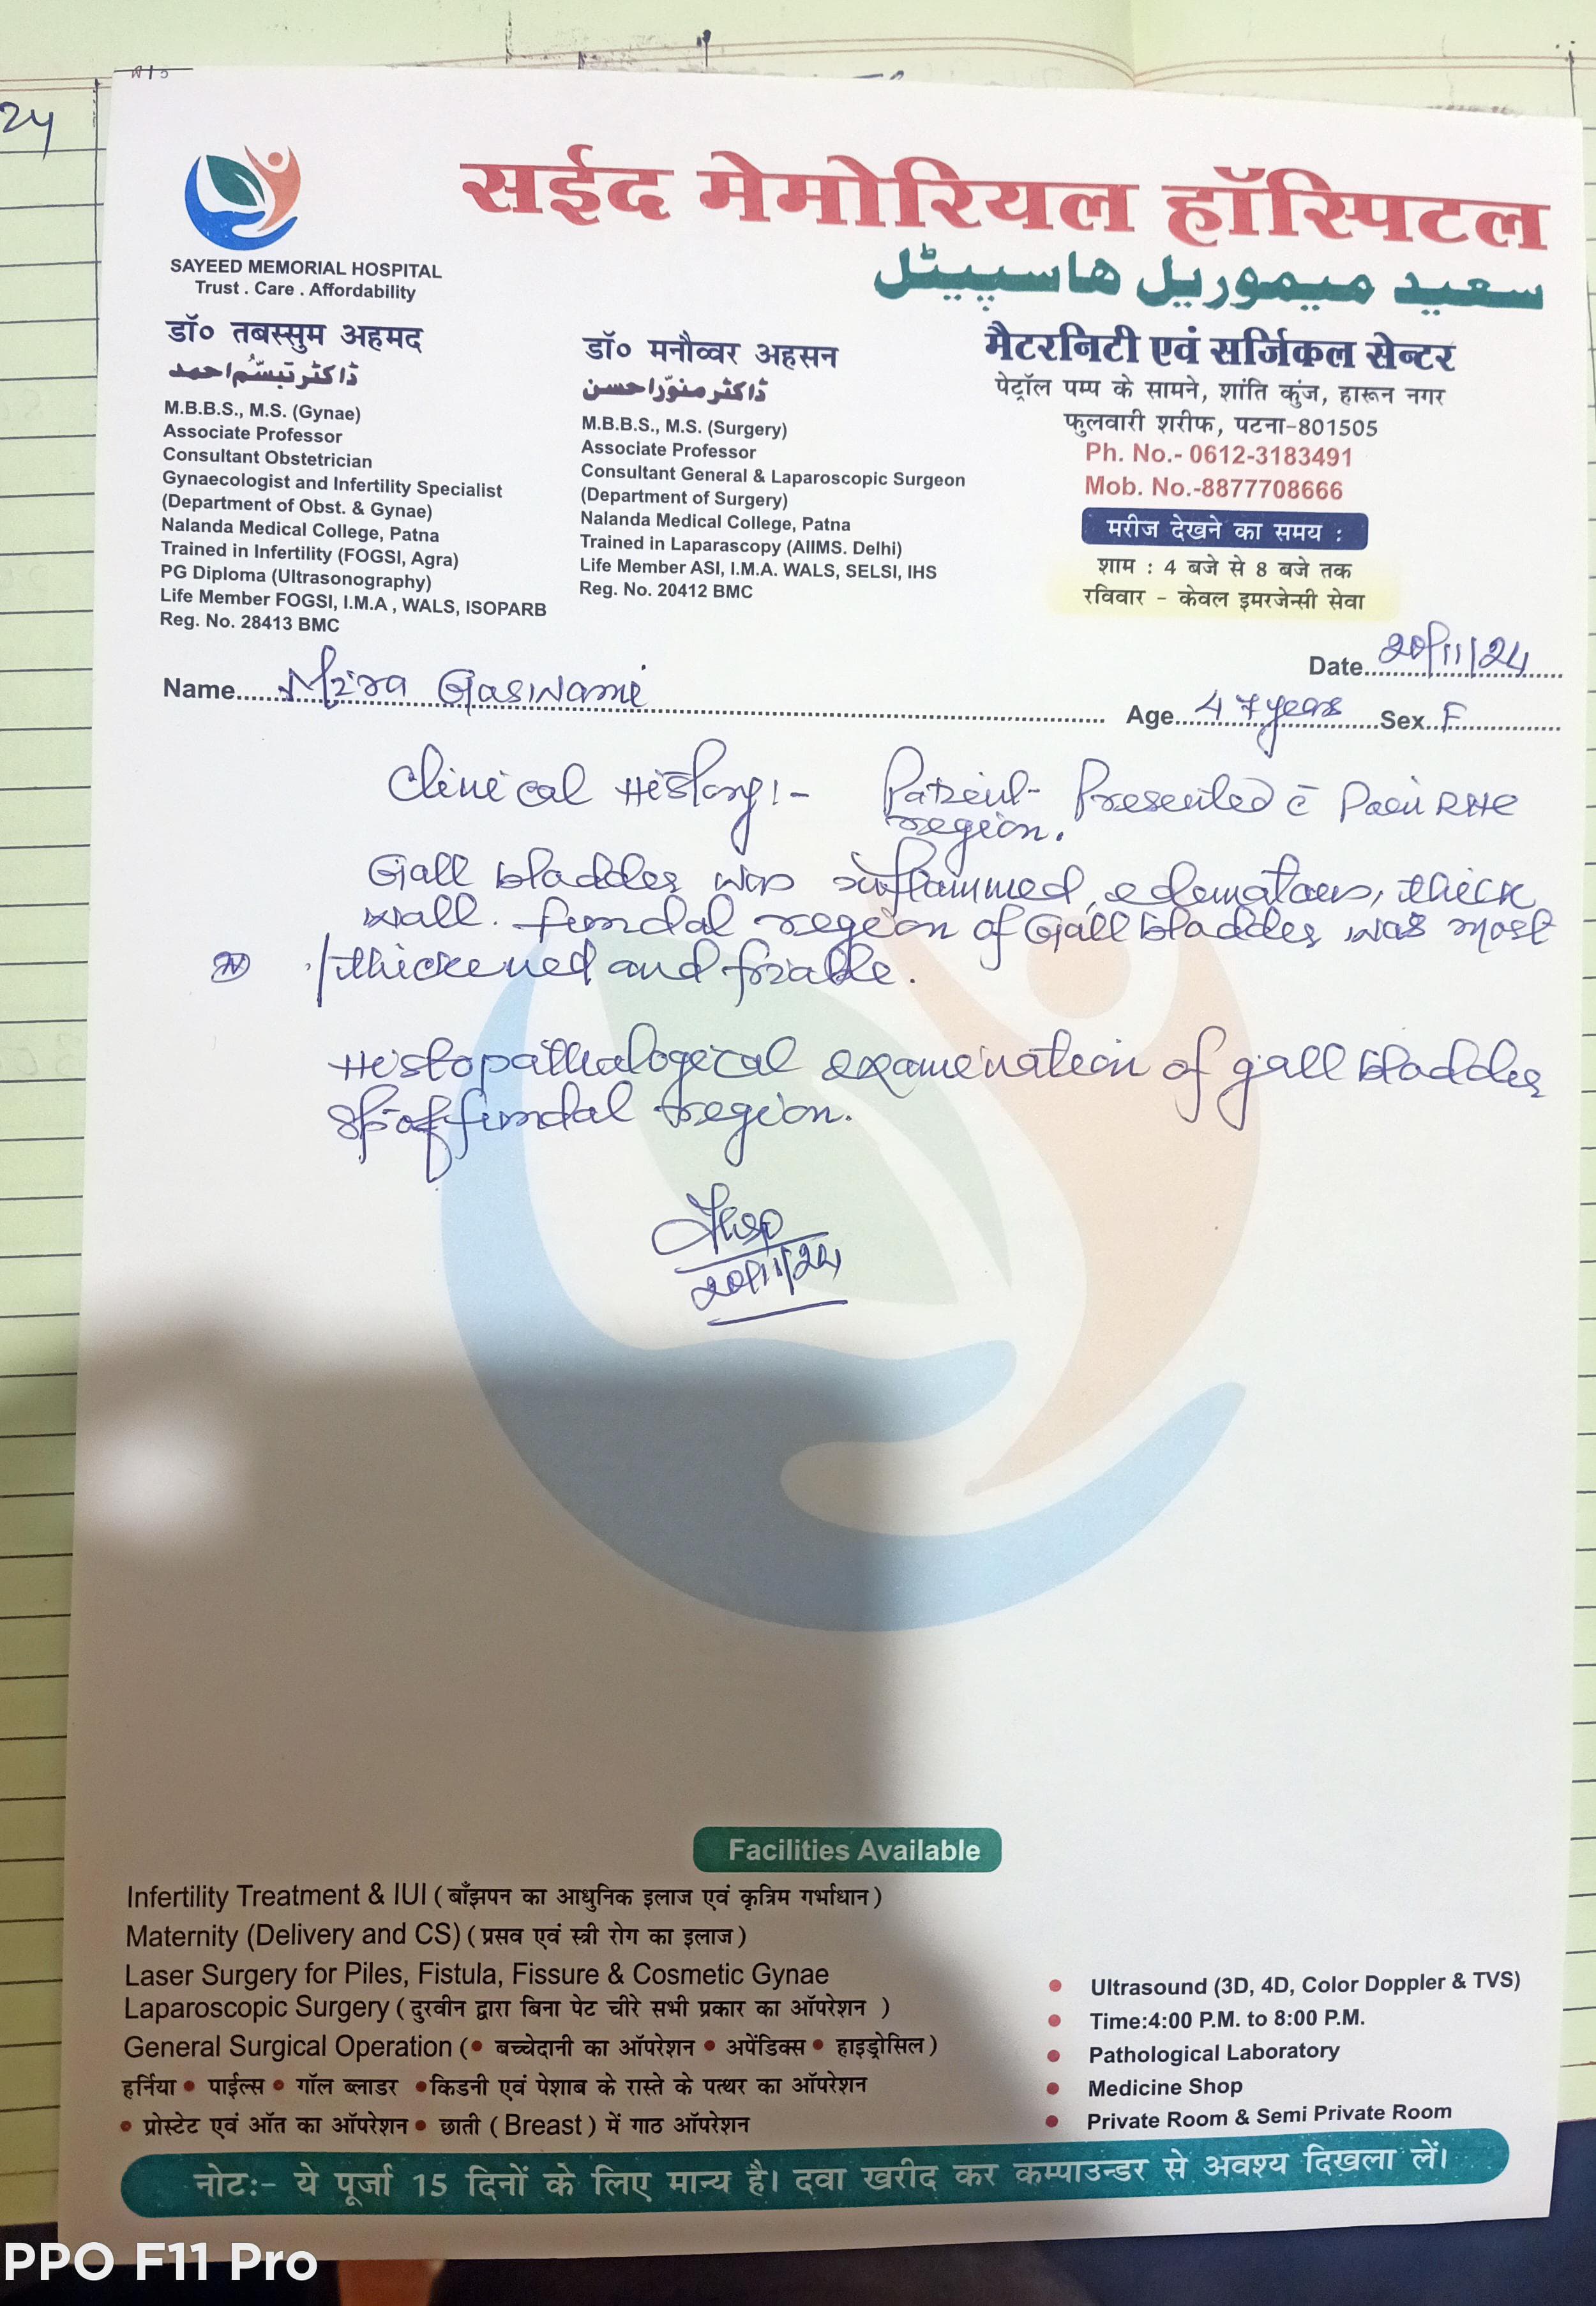 24
सईद मेमोरियल हॉस्पिटल
سعید میموریل هاسپیٹل
SAYEED MEMORIAL HOSPITAL
Trust . Care . Affordability
डॉ० तबस्सुम अहमद
ڈاکٹر تبسّم احمد
M.B.B.S., M.S. (Gynae)
Associate Professor
Consultant Obstetrician
Gynaecologist and Infertility Specialist
(Department of Obst. & Gynae)
Nalanda Medical College, Patna
Trained in Infertility (FOGSI, Agra)
PG Diploma (Ultrasonography)
Life Member FOGSI, I.M.A , WALS, ISOPARB
Reg. No. 28413 BMC
डॉ० मनौव्वर अहसन
ڈاکٹر منوّر احسن
M.B.B.S., M.S. (Surgery)
Associate Professor
Consultant General & Laparoscopic Surgeon
(Department of Surgery)
Nalanda Medical College, Patna
Trained in Laparascopy (AIIMS. Delhi)
Life Member ASI, I.M.A. WALS, SELSI, IHS
Reg. No. 20412 BMC
मैटरनिटी एवं सर्जिकल सेन्टर
पेट्रॉल पम्प के सामने, शांति कुंज, हारून नगर
फुलवारी शरीफ, पटना-801505
Ph. No.- 0612-3183491
Mob. No.-8877708666
मरीज देखने का समय :
शाम : 4 बजे से 8 बजे तक
रविवार - केवल इमरजेन्सी सेवा
Date 20/11/24
Name Mira
Age 47 years Sex F
Clinical History:- Patient Presented c̄ Pain
region.
Gall bladder was inflammed, edematous, thick
wall. fundal region of Gall bladder was most
thickened and friable.
Histopathological examination of gall bladder
of fundal region.
20/11/24
Facilities Available
Infertility Treatment & IUI ( बाँझपन का आधुनिक इलाज एवं कृत्रिम गर्भाधान )
Maternity (Delivery and CS) ( प्रसव एवं स्त्री रोग का इलाज )
Laser Surgery for Piles, Fistula, Fissure & Cosmetic Gynae
Laparoscopic Surgery ( दुरवीन द्वारा बिना पेट चीरे सभी प्रकार का ऑपरेशन )
General Surgical Operation (• बच्चेदानी का ऑपरेशन • अपेंडिक्स • हाइड्रोसिल )
हर्निया • पाईल्स • गॉल ब्लाडर • किडनी एवं पेशाब के रास्ते के पत्थर का ऑपरेशन
• प्रोस्टेट एवं ऑत का ऑपरेशन • छाती ( Breast ) में गाठ ऑपरेशन
• Ultrasound (3D, 4D, Color Doppler & TVS)
• Time:4:00 P.M. to 8:00 P.M.
• Pathological Laboratory
• Medicine Shop
• Private Room & Semi Private Room
नोट:- ये पूर्जा 15 दिनों के लिए मान्य है। दवा खरीद कर कम्पाउन्डर से अवश्य दिखला लें।
PPO F11 Pro